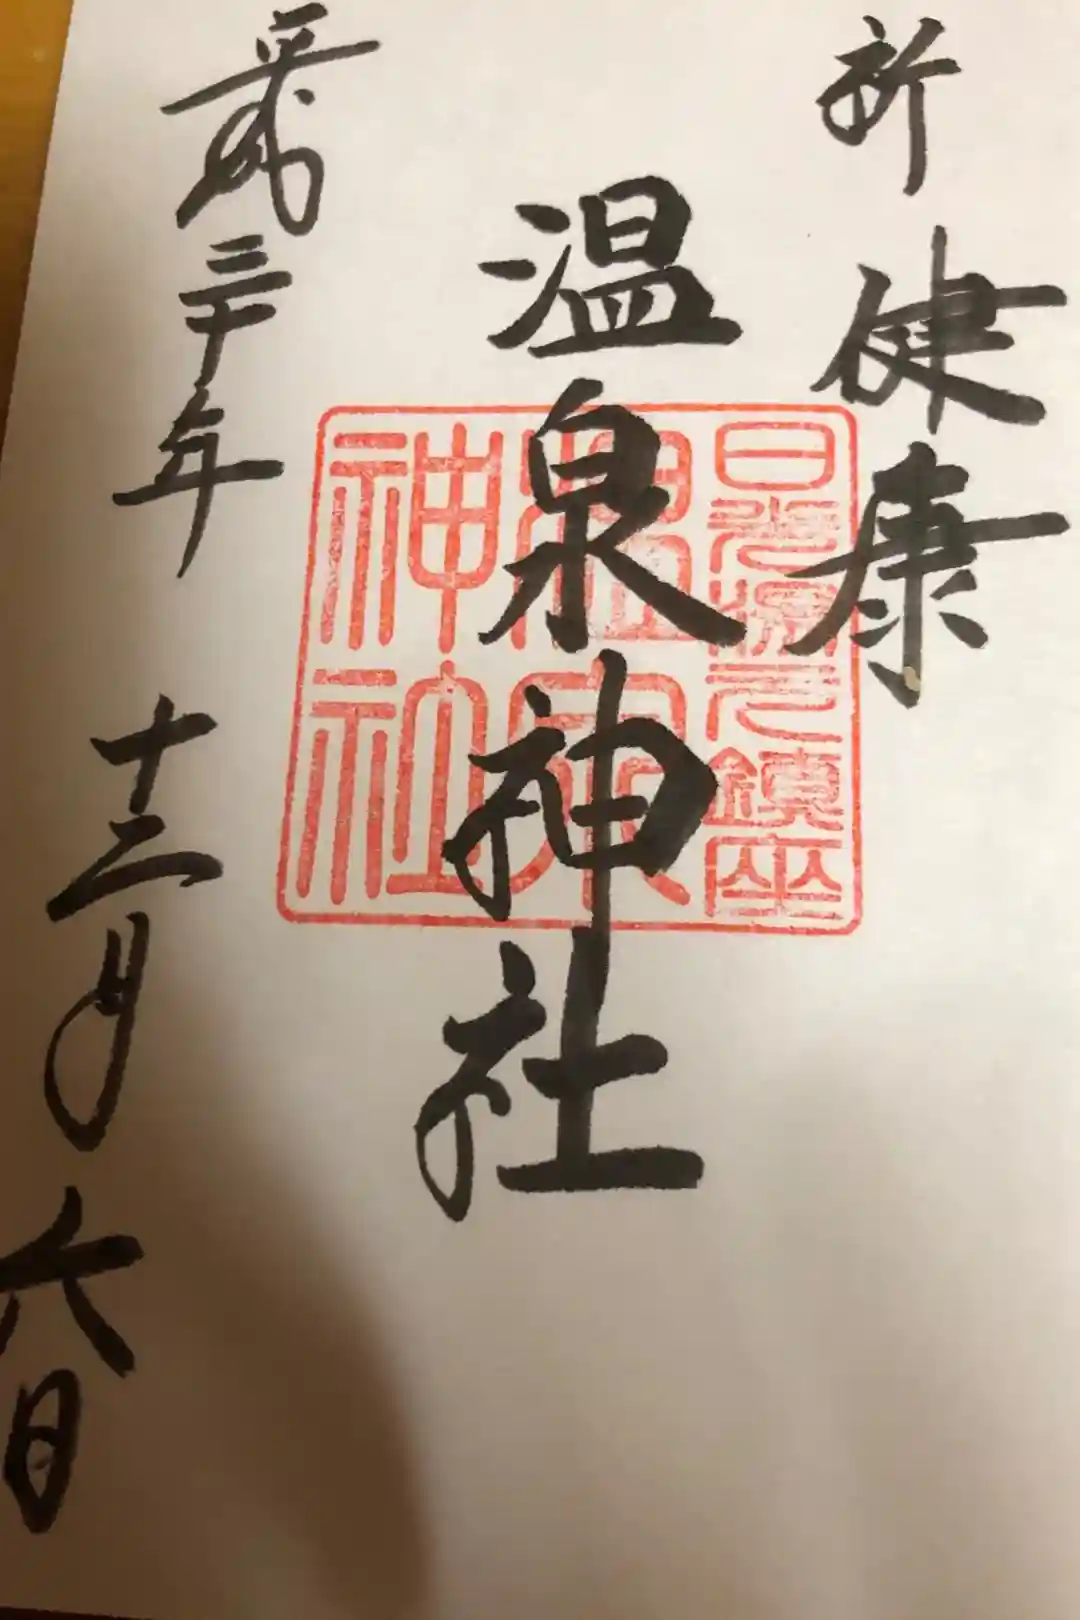 祈 健康
温泉神社
平成三十年 十二月六日
日光湯元鎮座
温泉
神社